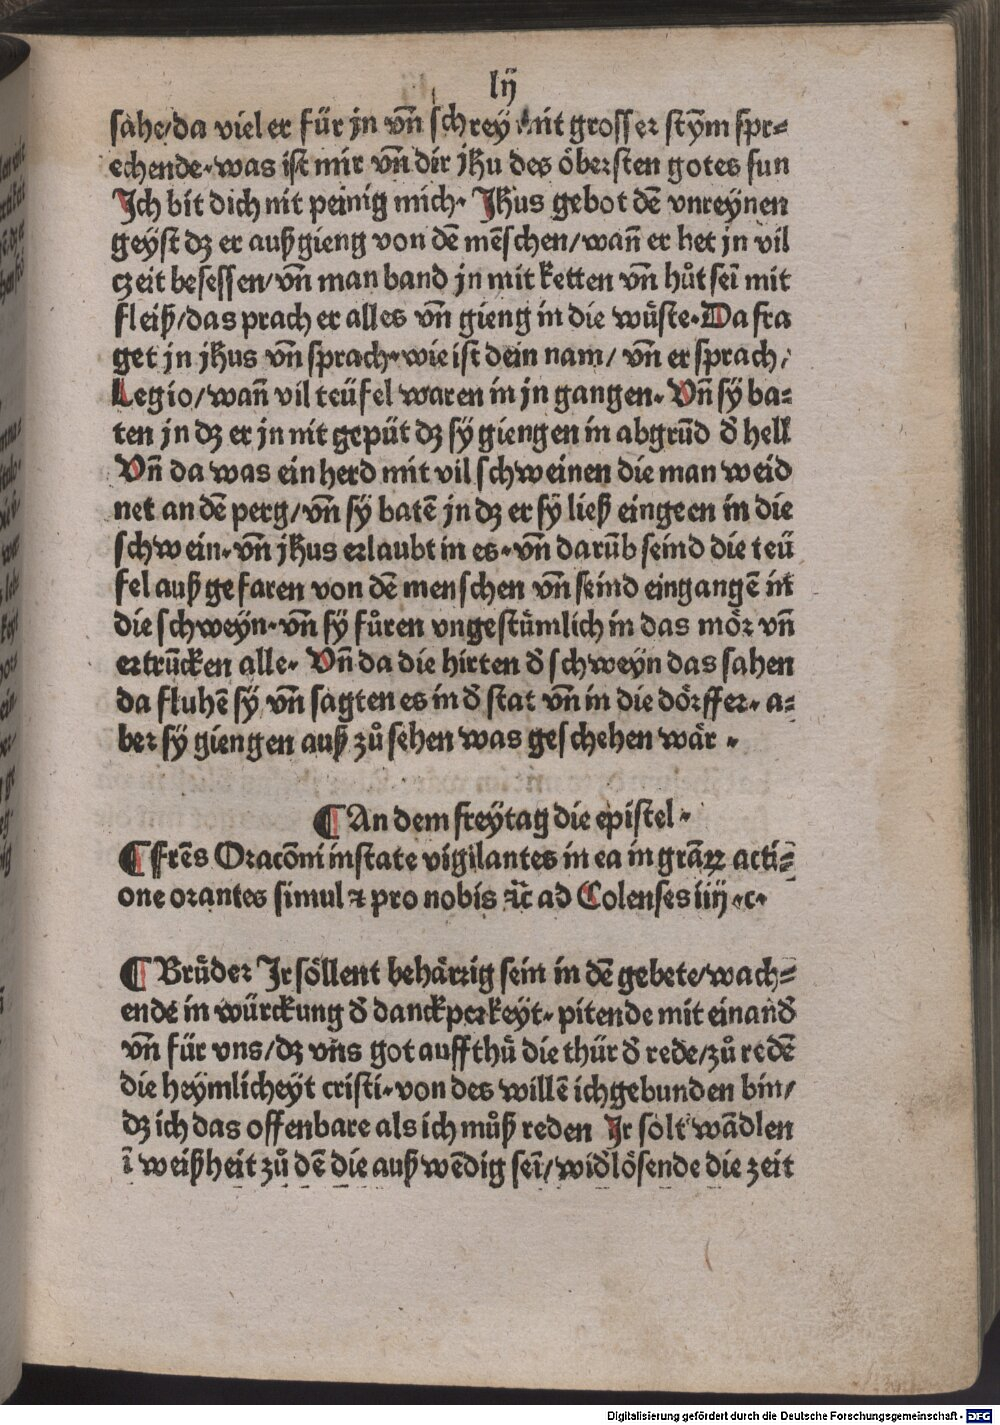 lij
sahe/da viel er für jn vñ schrey mit grosser stym̄ spr-
echende·was ist mir vñ dir jhu des öbersten gotes sun
Ich bit dich nit peinig mich· Jhus gebot dē vnreynen
geyst dz er außgieng von dē mēschen/wañ er het jn vil
czeit besessen/vñ man band jn mit ketten vñ hůt sei mit
fleiß/das prach er alles vñ gieng in die wůste·Da fra
get jn jhus vñ sprach·wie ist dein nam/ vñ er sprach/
Legio/wañ vil teüfel waren in jn gangen· Vñ sy ba-
ten jn dz er jn nit gepüt dz sy giengen in abgrūd d̄ hell
Vñ da was ein herd mit vil schweinen die man weid
net an dē perg/vñ sy batē jn dz er sy ließ eingeen in die
schwein·vñ jhus erlaubt in es·vñ darūb seind die teü
fel auß gefaren von dē menschen vñ seind eingangē in
die schweyn·vñ sy fůren vngestümlich in das mör vñ
ertrūcken alle· Vñ da die hirten d̄ schweyn das sahen
da fluhē sy vñ sagten es in d̄ stat vñ in die dörffer· a-
ber sy giengen auß zů sehen was geschehen wär ·
¶ An dem freytag die epistel ·
¶ frēs Oracōni instate vigilantes in ea in grāꝝ acti-
one orantes simul ⁊ pro nobis ⁊c̄ ad Colenses iiij ·c·
¶ Brůder Ir söllent behärrig sein in dē gebete/wach-
ende in würckung d̄ danckperkeyt· pitende mit einand̄
vñ für vns/dz vns got auffthů die thür d̄ rede/zů redē
die heymlicheyt cristi·von des willē ich gebunden bin/
dz ich das offenbare als ich můß reden Ir solt wādlen
ī weißheit zů dē die außwēdig seī/wid̄lösende die zeit
Digitalisierung gefördert durch die Deutsche Forschungsgemeinschaft - DFG